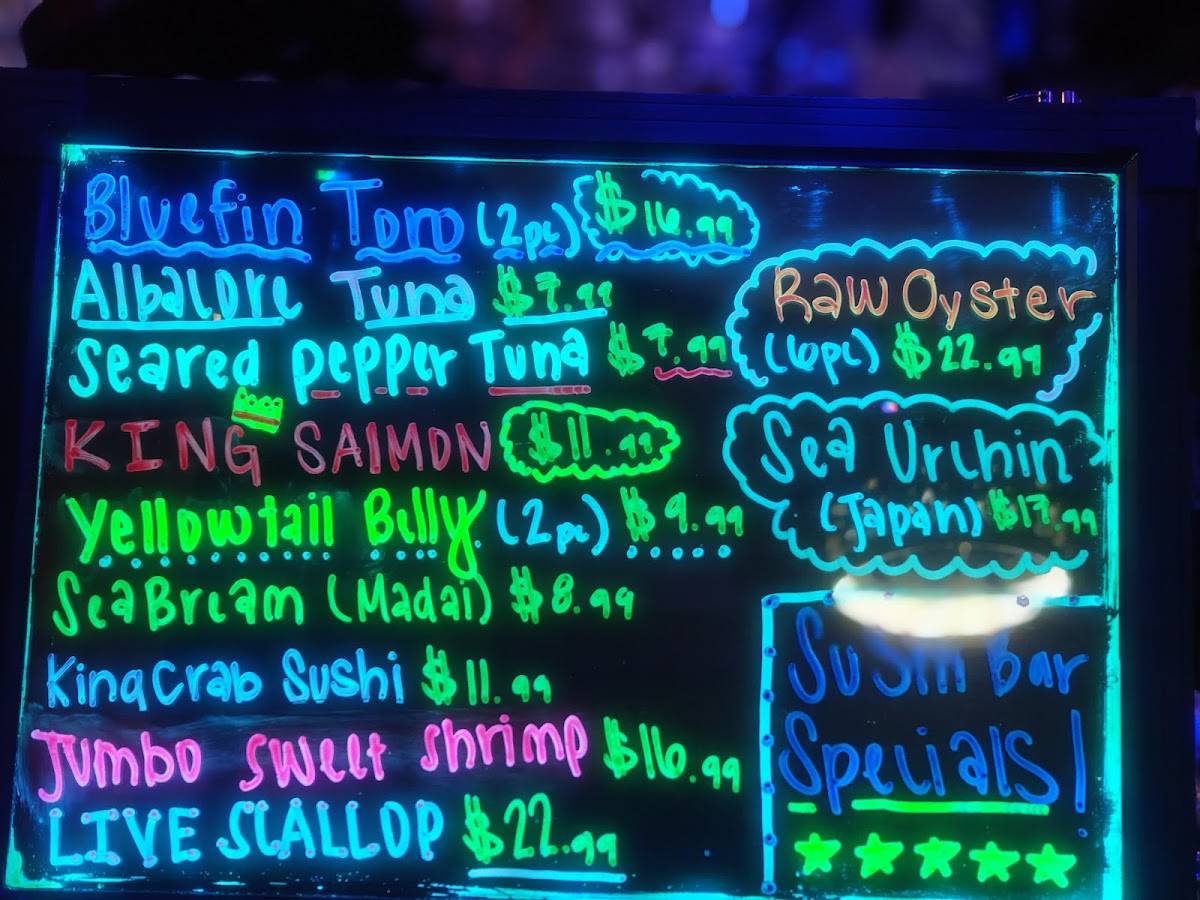 Bluefin Toro (2pc) $16.99
Albacore Tuna $7.99
Seared pepper Tuna $7.99
KING SALMON $11.99
Yellowtail Belly (2pc) $9.99
Sea Bream (Madai) $8.99
King Crab Sushi $11.99
Jumbo sweet shrimp $16.99
LIVE SCALLOP $22.99
Raw Oyster
(6pc) $22.99
Sea Urchin
(Japan) $17.99
Sushi Bar
Specials!